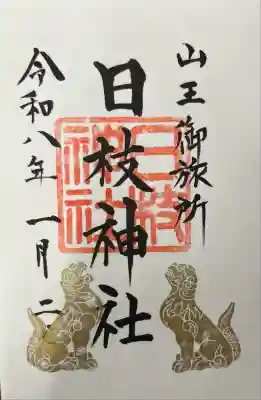 山王御旅所
日枝神社
日枝神社
令和八年一月二